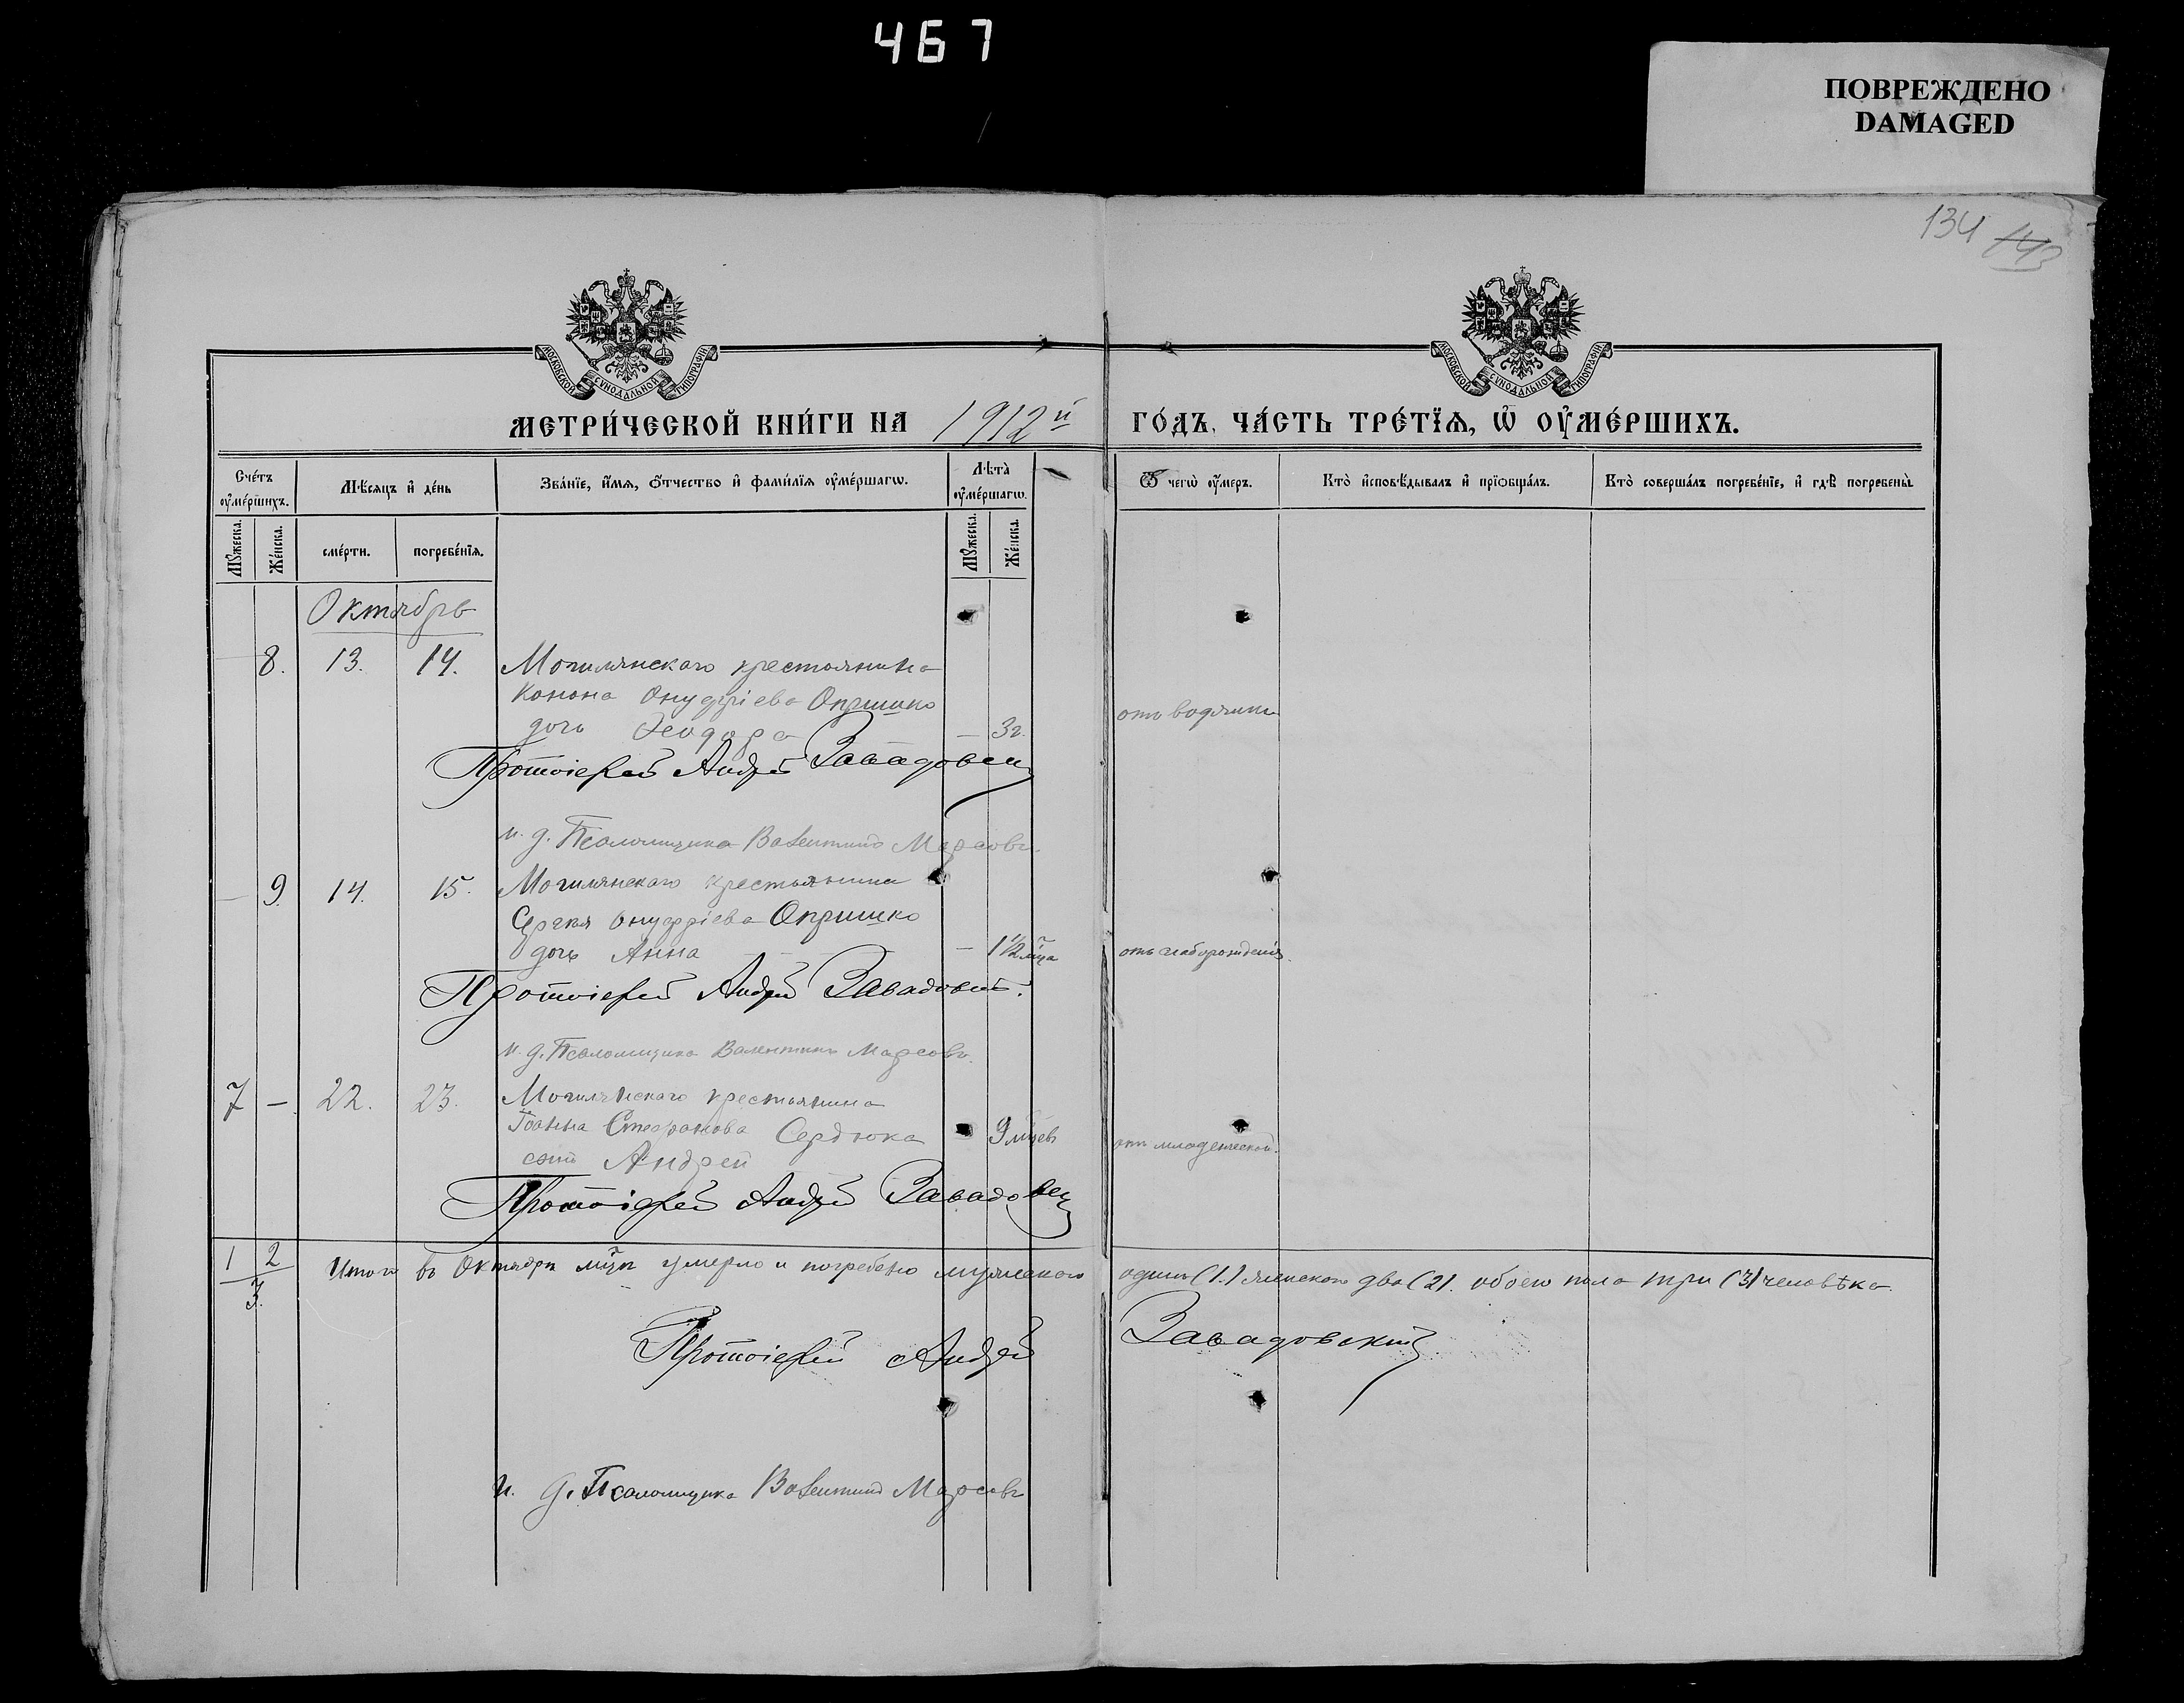 467
ПОВРЕЖДЕНО
DAMAGED
134 143
МОСКОВСКОЙ СУНОДАЛЬНОЙ ТИПОГРАФІИ
МОСКОВСКОЙ СУНОДАЛЬНОЙ ТИПОГРАФІИ
МЕТРИ́ЧЕСКОЙ КНИ́ГИ НА 1912й ГО́ДЪ, ЧА́СТЬ ТРЕ́ТЇѦ, Ѡ҆ ОУ҆МЕ́РШИХЪ.
Сче́тъ оу҆ме́ршихъ.
Мѣ́сяцъ и҆ де́нь
Зва́нїе, и҆́мѧ, ѻ҆́тчество и҆ фами́лїѧ оу҆ме́ршагѡ.
Лѣ́та оу҆ме́ршагѡ.
Ѿ чегѡ̀ оу҆́меръ.
Кто̀ и҆сповѣ́дывалъ и҆ прїѡбща́лъ.
Кто̀ соверша́лъ погребе́нїе, и҆ гдѣ̀ погребены̀.
Мꙋ́жеска. Же́нска. сме́рти. погребе́нїѧ. Мꙋ́жеска. Же́нска.
Октябрь
8. 13. 14. Могилянскаго крестьянина
Конона Онуфріева Опришко
дочь Ѳеодора — 3 г. отъ водянки
Протоіерей Андрей Завадовскій
и. д. Псаломщика Валентинъ Марсовъ
— 9. 14. 15. Могилянскаго крестьянина
Сергія Онуфріева Опришко
дочь Анна — 1½ мца отъ слаборожденія.
Протоіерей Андрей Завадовскій.
и. д. Псаломщика Валентинъ Марсовъ.
7 — 22. 23. Могилянскаго крестьянина
Іоанна Стефанова Сердюка 9 мцевъ
сынъ Андрей отъ младенческой.
Протоіерей Андрей Завадовскій
1 2
3. Итого въ Октябрѣ мцѣ умерло и погребено мужескаго одинъ (1.) женскаго два (2). обоего пола три (3) человѣка.
Протоіерей Андрей Завадовскій.
и. д. Псаломщика Валентинъ Марсовъ